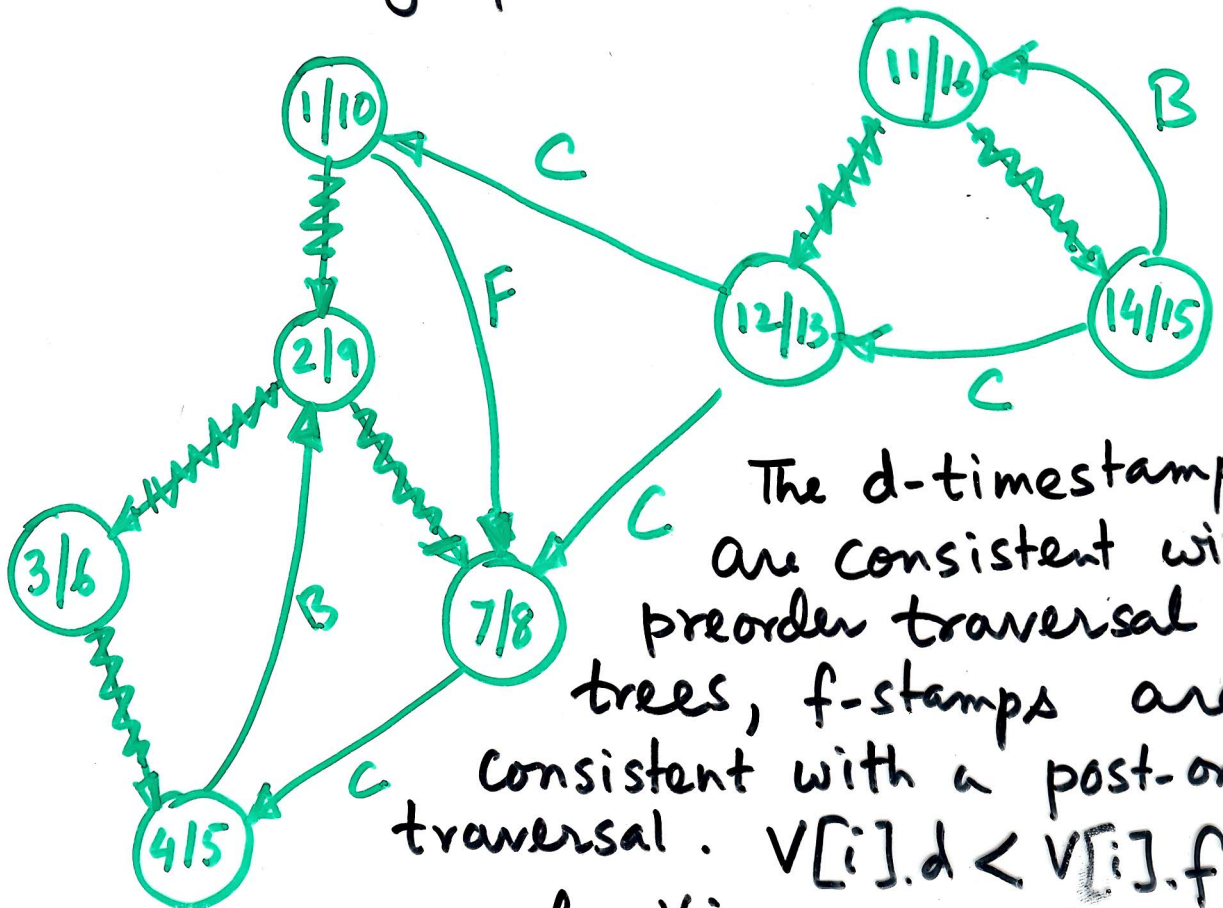 11/16
1/10
B
C
F
12/13
14/15
2/9
C
The d-timestamp
C
are consistent wi
3/6
B
7/8
preorder traversal
trees, f-stamps ar
C
consistent with a post-or
4/5
traversal. V[i].d < V[i].f